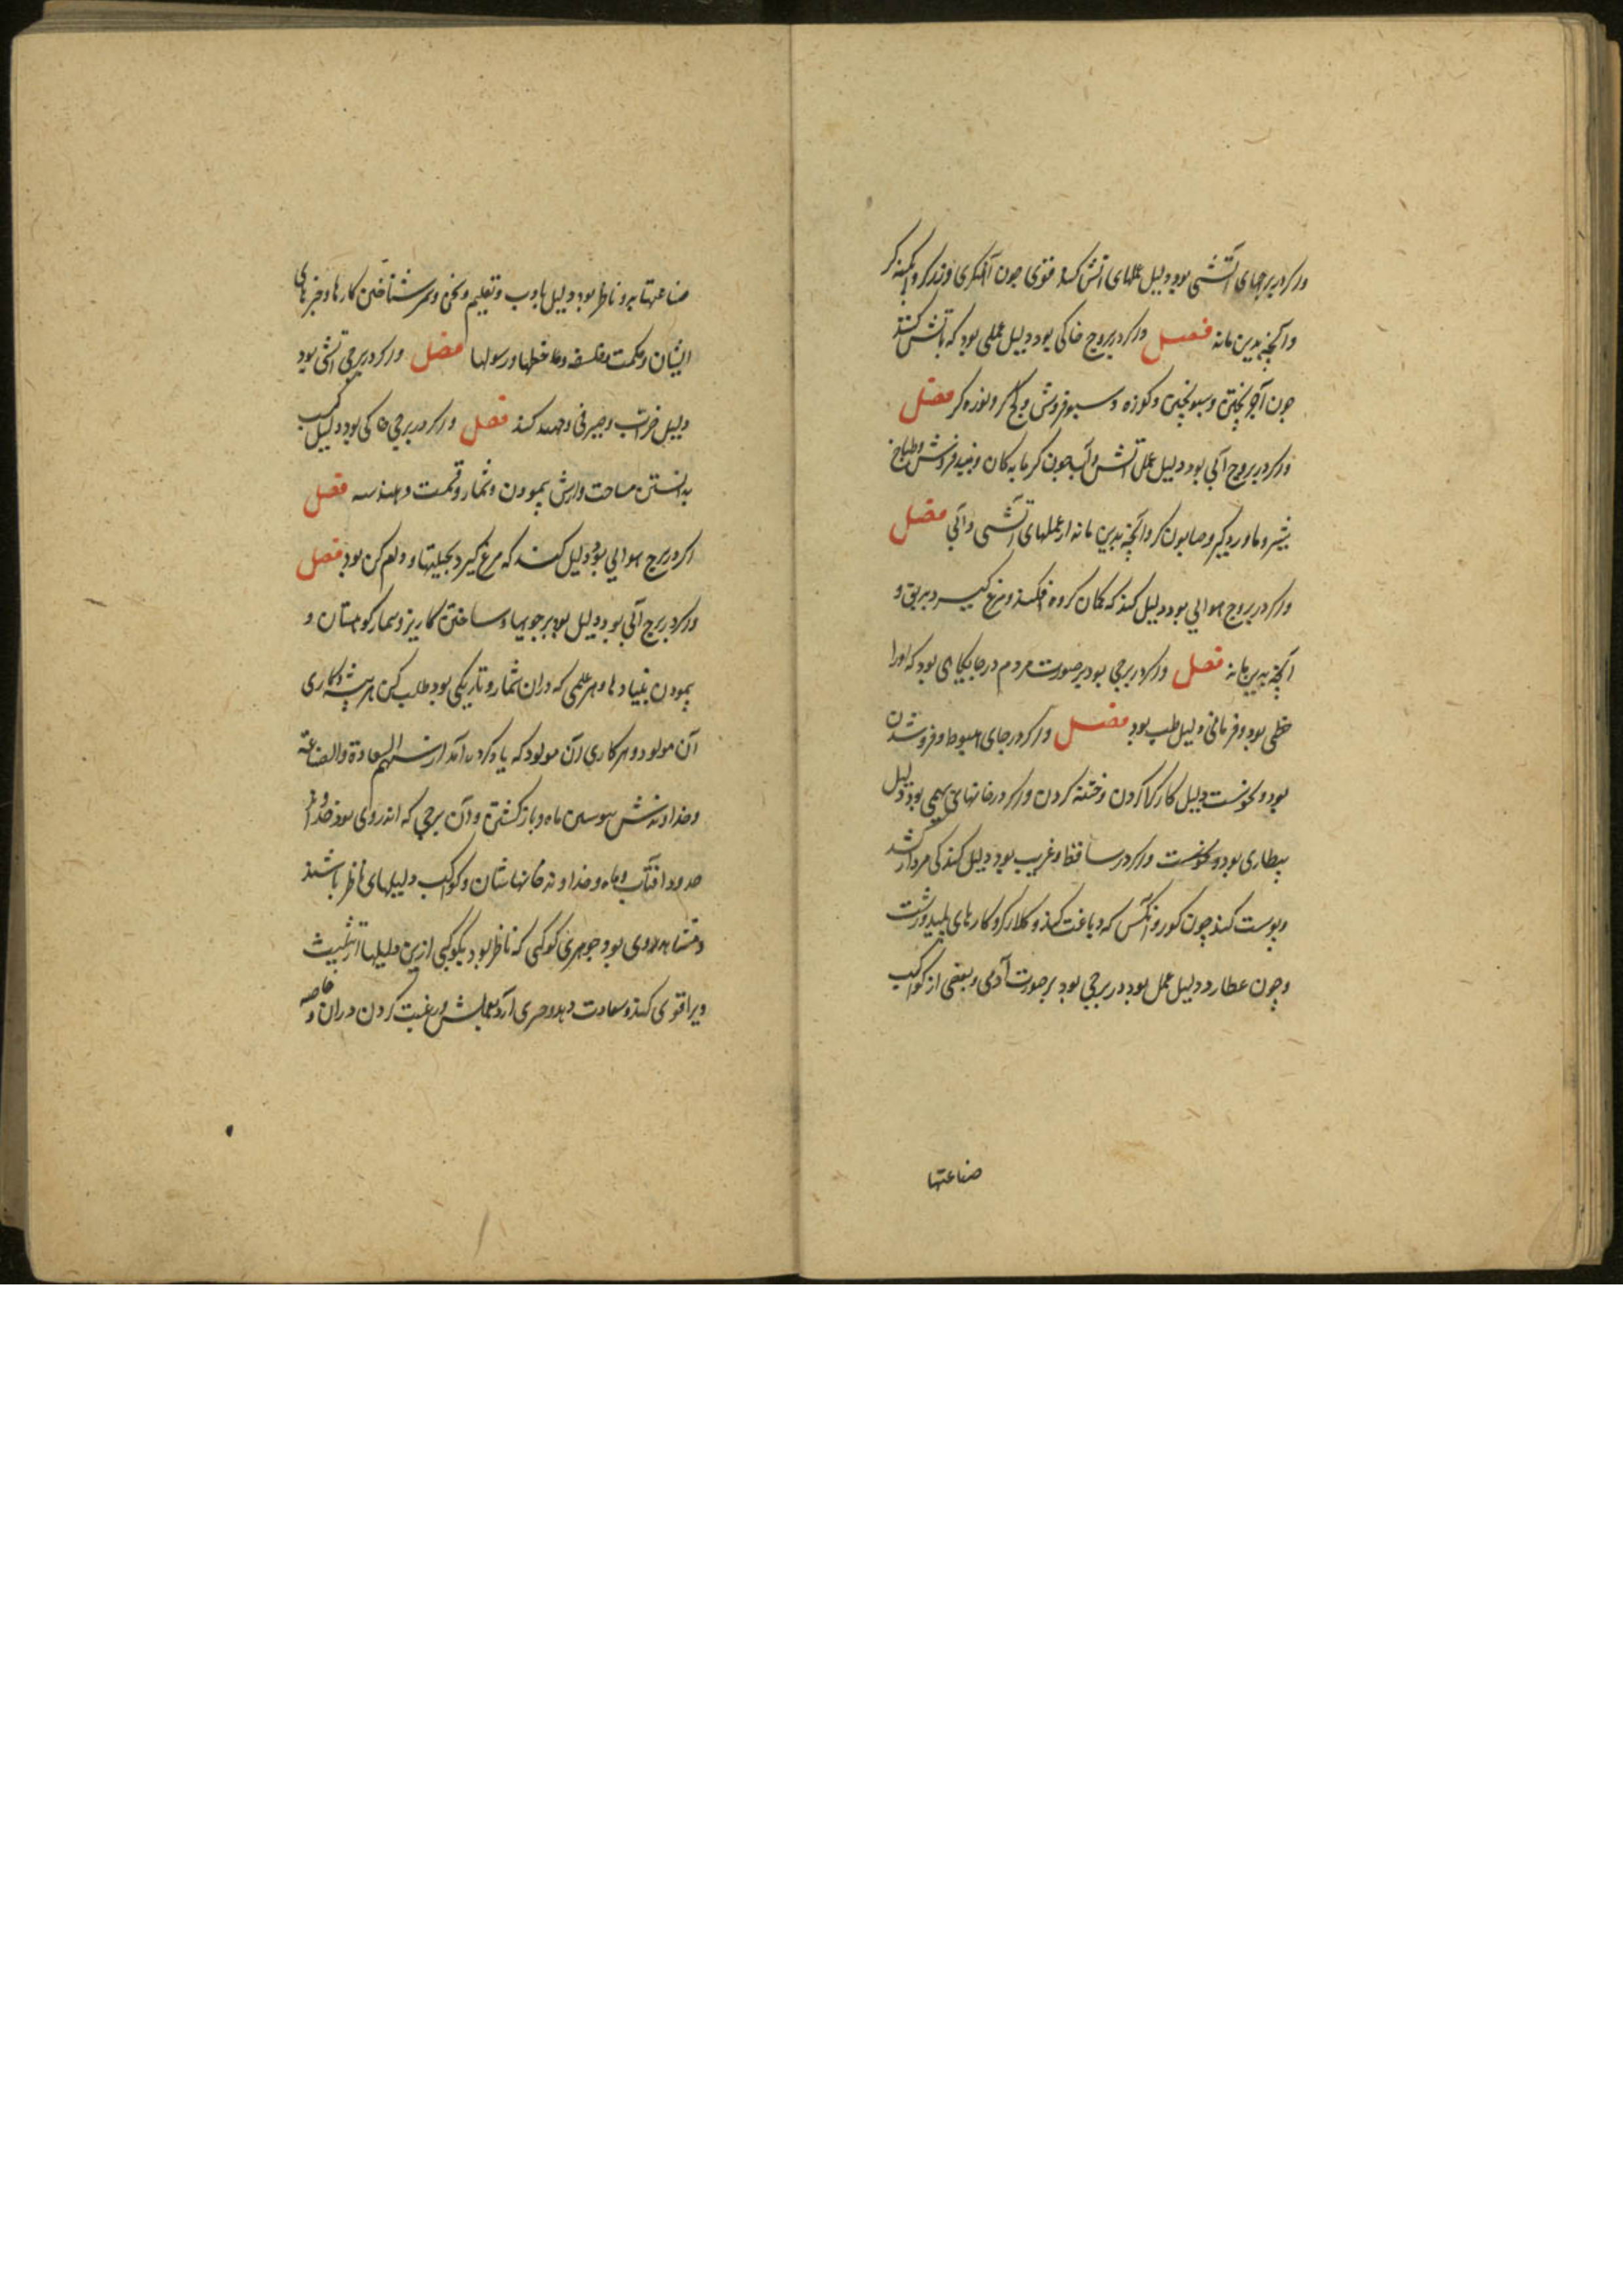 واکر در برجهای آتشی بود دلیل عملهای اتش کند قوی چون آهنگری و زرکر و ابکینه کر
و آنچه بدین ماند فصل واکر در بروج خاکی بود دلیل عملی بود که باتش کنند
چون آجر پختن و سبو پختن و کوزه و سبو فروش و کچ کر و نوره کر فصل
واکر در بروج آبی بود دلیل عمل آتش و آب چون کرمابه کان و نبید فروش و طباخ
شیر و ماورد کیر و صابون کر و آنچه بدین ماند از عملهای آتشی و آبی فصل
واکر در بروج هوایی بود دلیل کند که کمان کروهه افکند و مرغ کیرد بریق و
آنچه بدین ماند فصل واکر در برجی بود بر صورت مردم در جایکاهی بود که او را
حظی بود و فرمانی دلیل طب بود فصل واکر در جای هبوط و فروشدن
بود و نحوست دلیل کار کرا کردن و ختنه کردن واکر در خانهای بهیمی بود دلیل
بیطاری بود و نحوست واکر در ساقط و غریب بود دلیل کند کی مردار کشد
و پوست کند چون کور و آنکس که دباغت کند و کلار کر و کارهای پلید و زشت
و چون عطارد دلیل عمل بود در برجی بود بر صورت آدمی و بعضی از کواکب
صناعتها
صناعتها برو ناظر بود دلیل بادب و تعلیم و نحو و شناختن کارها و خبرهای
ایشان و حکمت و فلسفه و خطها و رسولها فصل واکر در برجی آتشی بود
دلیل ضراب و صیرفی و کند فصل واکر در برجی خاکی بود دلیل کسب
بدانستن مساحت و ارش پیمودن و شمار و قسمت و هندسه فصل
اکر در برج هوایی بود دلیل کند که مرغ کیرد بحیلتها و دام کن بود فصل
واکر در برج آبی بود دلیل بود بر جویها و ساختن کاریز و شمار کوهستان و
پیمودن بنیادها و هر علمی که دران شمار و تاریکی بود طلب کن هر پیشه و کاری
آن مولود و هر کاری آن مولود که یاد کرده آمد از سهم السعادة والصناعة
و خداوندش بوسین ماه و باز کشتن و آن برجی که اندر وی بود و خداوند
حدود آفتاب و ماه و خداوند خانهاشان و کواکب دلیلهای ناظر باشند
و مشاهد وی بود جوهری کوکبی که ناظر بود بکوکبی ازین دلیلها از تثلیث
ویرا قوی کند و سعادت دهد و حرص آرد بعملش و رغبت کردن دران و خاصه